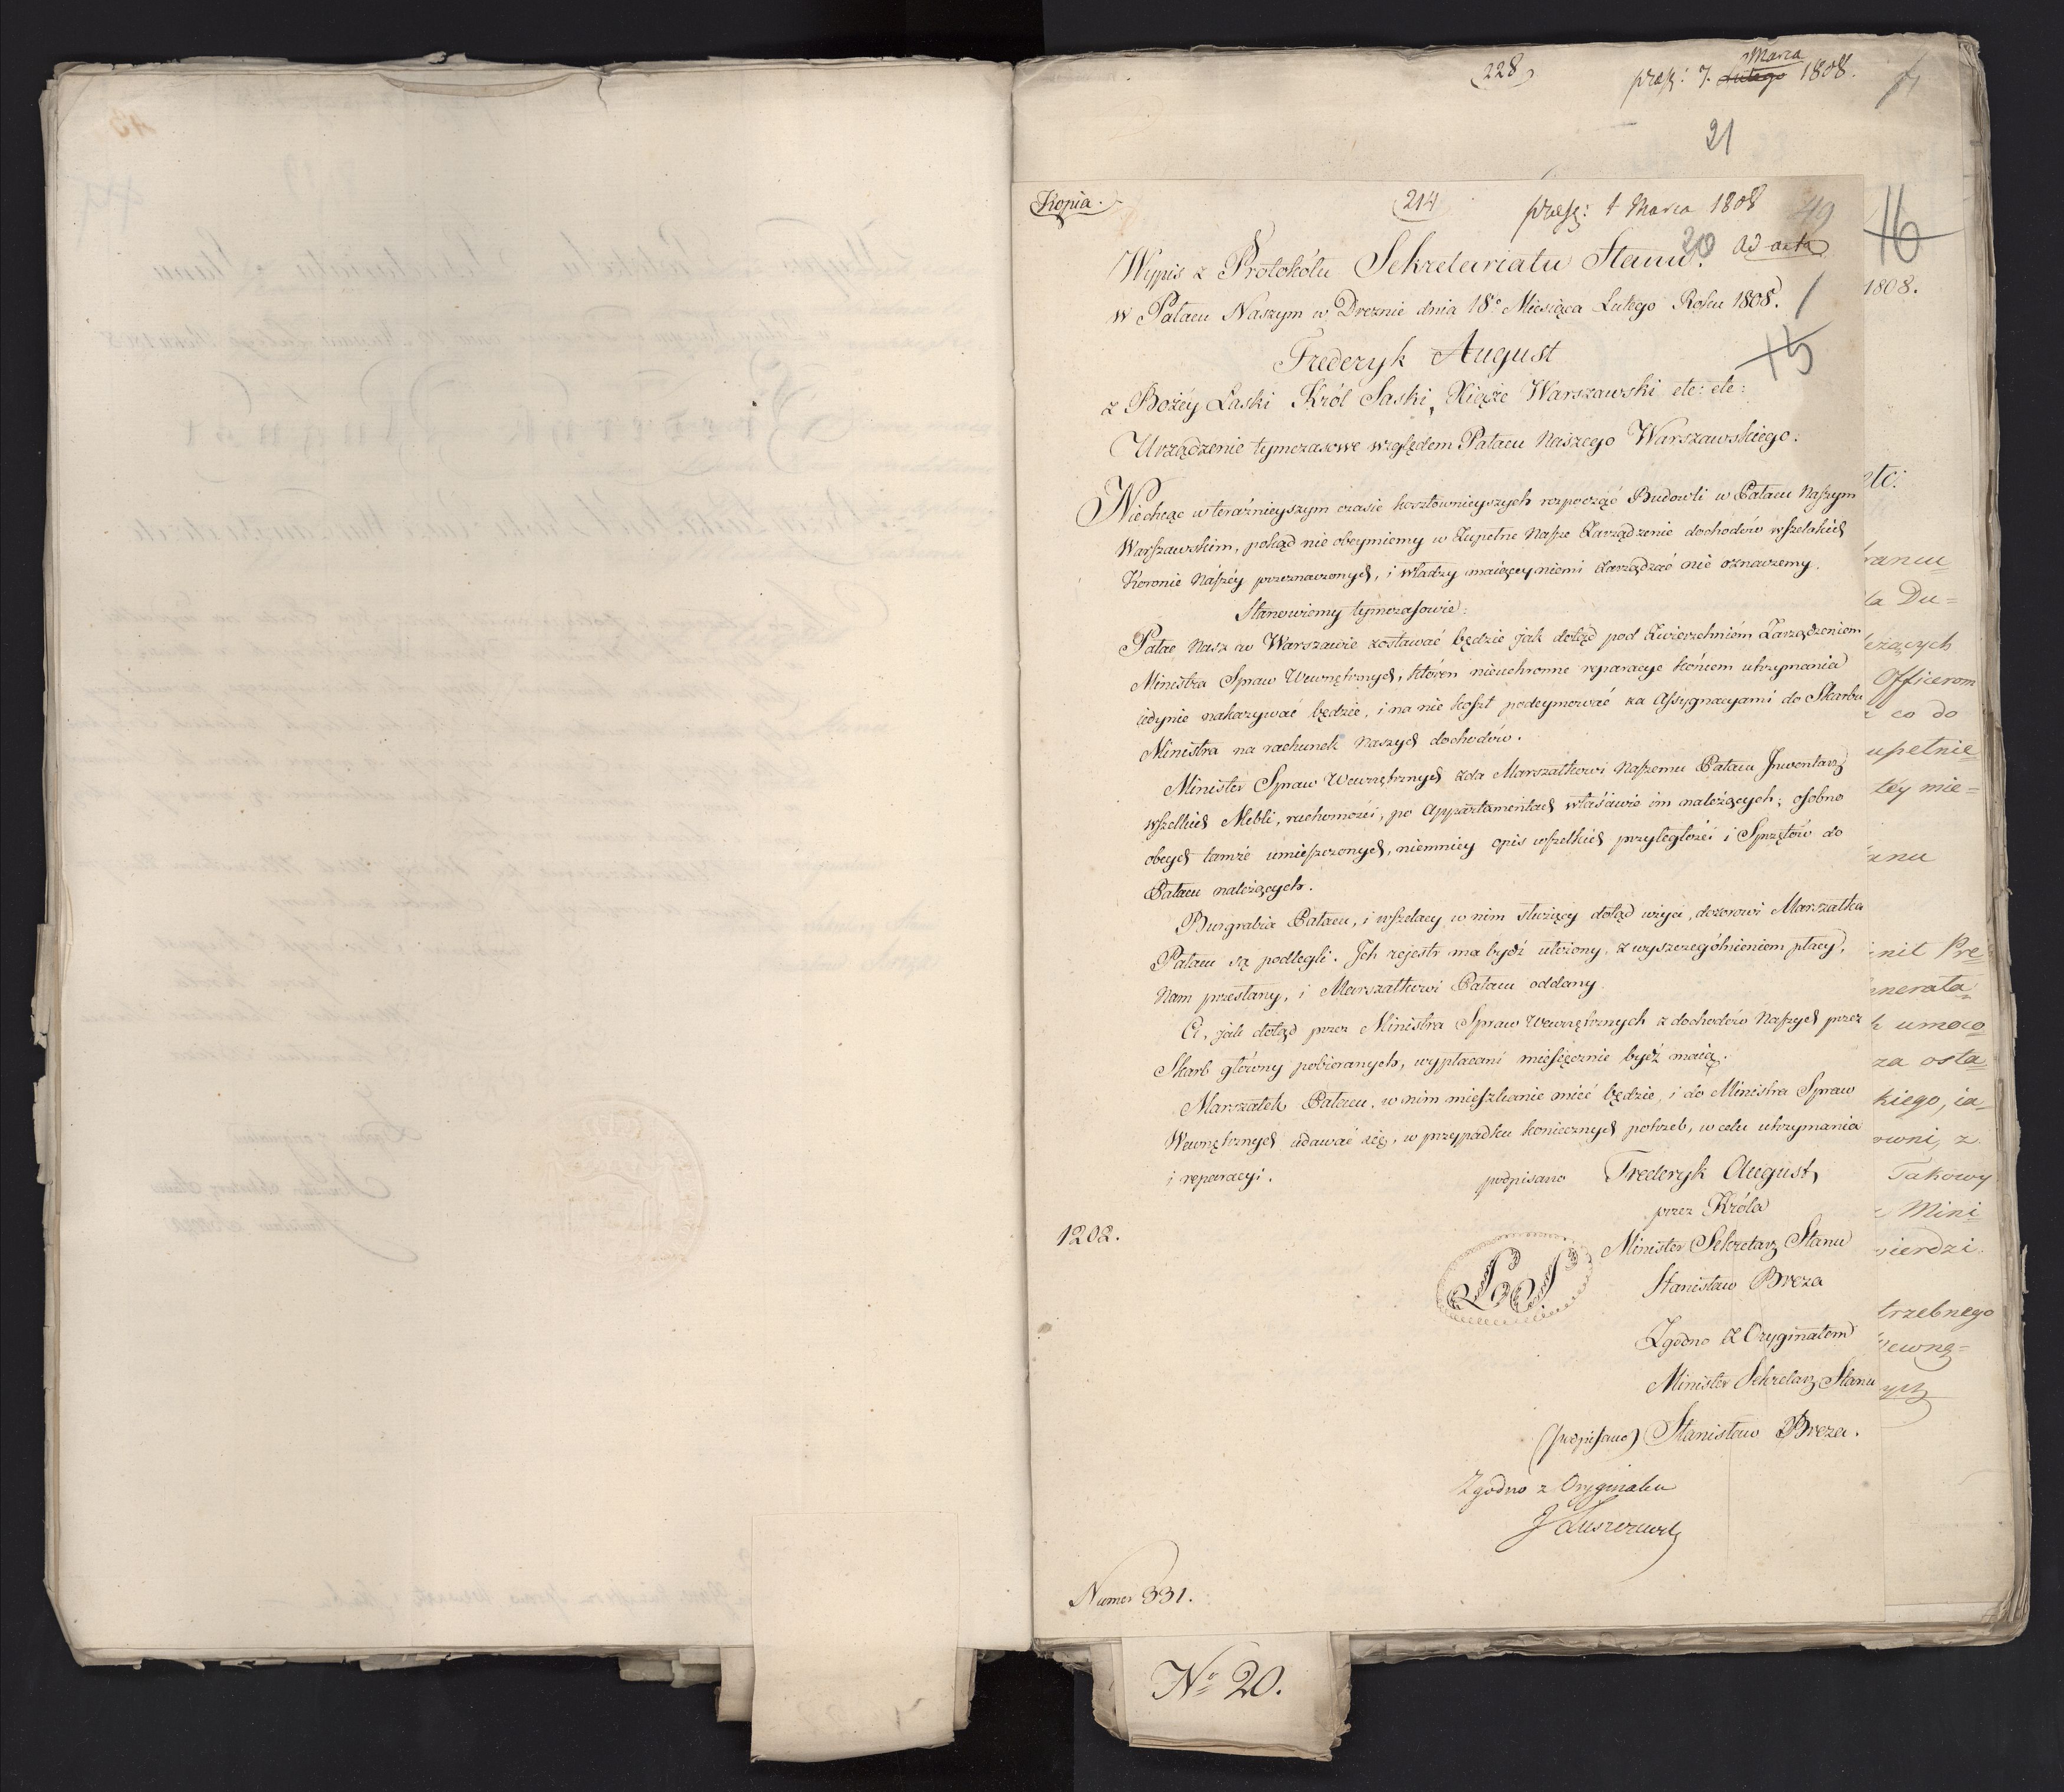 228
Marca
pres: 7. Lutego 1808.
21
Kopia.
214
presę: 1 Marca 1808
49
20 ad acta
16
Wypis z Protokółu Sekretariatu Stanu.
w Pałacu Naszym w Dreznie dnia 18º Miesiąca Lutego Roku 1808.
1808.
Frederyk August
15
z Bożéy Łaski Król Saski, Xiąże Warszawski etc: etc:
Urządzenie tymczasowe względem Pałacu Naszego Warszawskiego:
etc:
Niechcąc w teraźnieyszym czasie kosztownieyszych rozpocząć Budowli w Pałacu Naszym
Warszawskim, pokąd nie obeymiemy w Zupełne Nasze Zarządzenie dochodów wszelkich
Koronie Naszéy przeznaczonych, i władzy maiącey niemi Zarządzać nie oznaczemy.
Stanowiemy tymczasowie:
Pałac Nasz w Warszawie zostawać będzie jak dotąd pod Zwierzchniém Zarządzeniem
Ministra Spraw Wewnętrznych, któren nieuchronne reparacye końcem utrzymania
iedynie nakazywać będzie, i na nie koszt podeymować za Assygnacyami do Skarbu
Ministra na rachunek Naszych dochodów.
Minister Spraw Wewnętrznych zda Marszałkowi Naszemu Pałacu Inwentarz
wszelkich Mebli, ruchomości, po Appartamentach właściwie im należących; osobno
obcych tamże umieszczonych, niemniey opis wszelkich przyległości i Sprzętów do
Pałacu należących.
Burgrabia Pałacu, i wszelacy w nim służący dotąd użyci, dozorowi Marszałka
Pałacu są podlegli. Ich rejestr ma bydź ułożony, z wyszczególnieniem płacy,
Nam przesłany, i Marszałkowi Pałacu oddany.
Ci, jak dotąd przez Ministra Spraw Wewnętrznych z dochodów Naszych przez
Skarb główny pobieranych, wypłacani miesięcznie bydź maią.
Marszałek Pałacu, w nim mieszkanie mieć będzie, i do Ministra Spraw
Wewnętrznych udawać się, w przypadku koniecznych potrzeb, w celu utrzymania
i reparacyi.
podpisano Frederyk August,
przez Króla
1202.
Minister Sekretarz Stanu
LS
Stanisław Breza
Zgodno z Oryginałem
Minister Sekretarz Stanu
(podpisano) Stanisław Breza.
Zgodno z Oryginału
J Łuszczewski
Numer 331.
Nº 20.
ła Du=
Officerom
co do
upełnie
tey mie=
nil Pre=
umoco=
za osta=
kiego, ia=
Takowy
Mini=